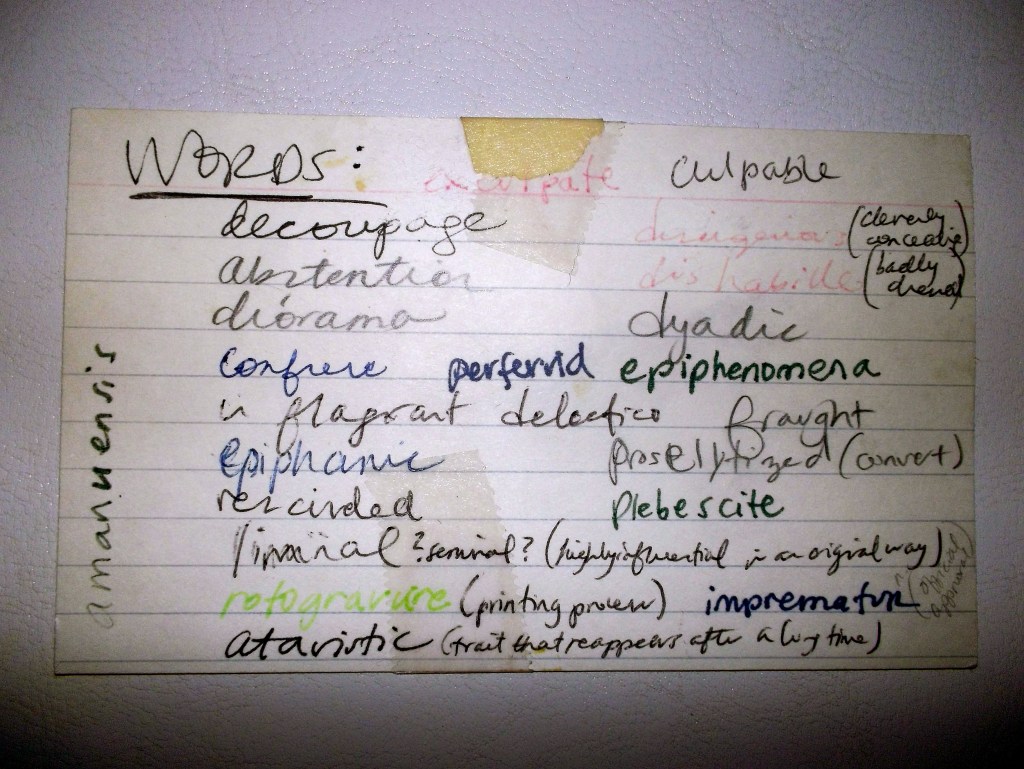 WORDS: exculpate culpable
decoupage disigenious (cleverly concealing)
abstention dishabille (badly dressed)
diorama dyadic
confrere perfervid epiphenomena
in flagrant delectico fraught
epiphanic proselytized (convert)
rescinded plebescite
liminal ? seminal? (highly influential in an original way)
rotogravure (printing process) imprematur (official approval)
atavistic (trait that reappears after a long time)
amanuensis